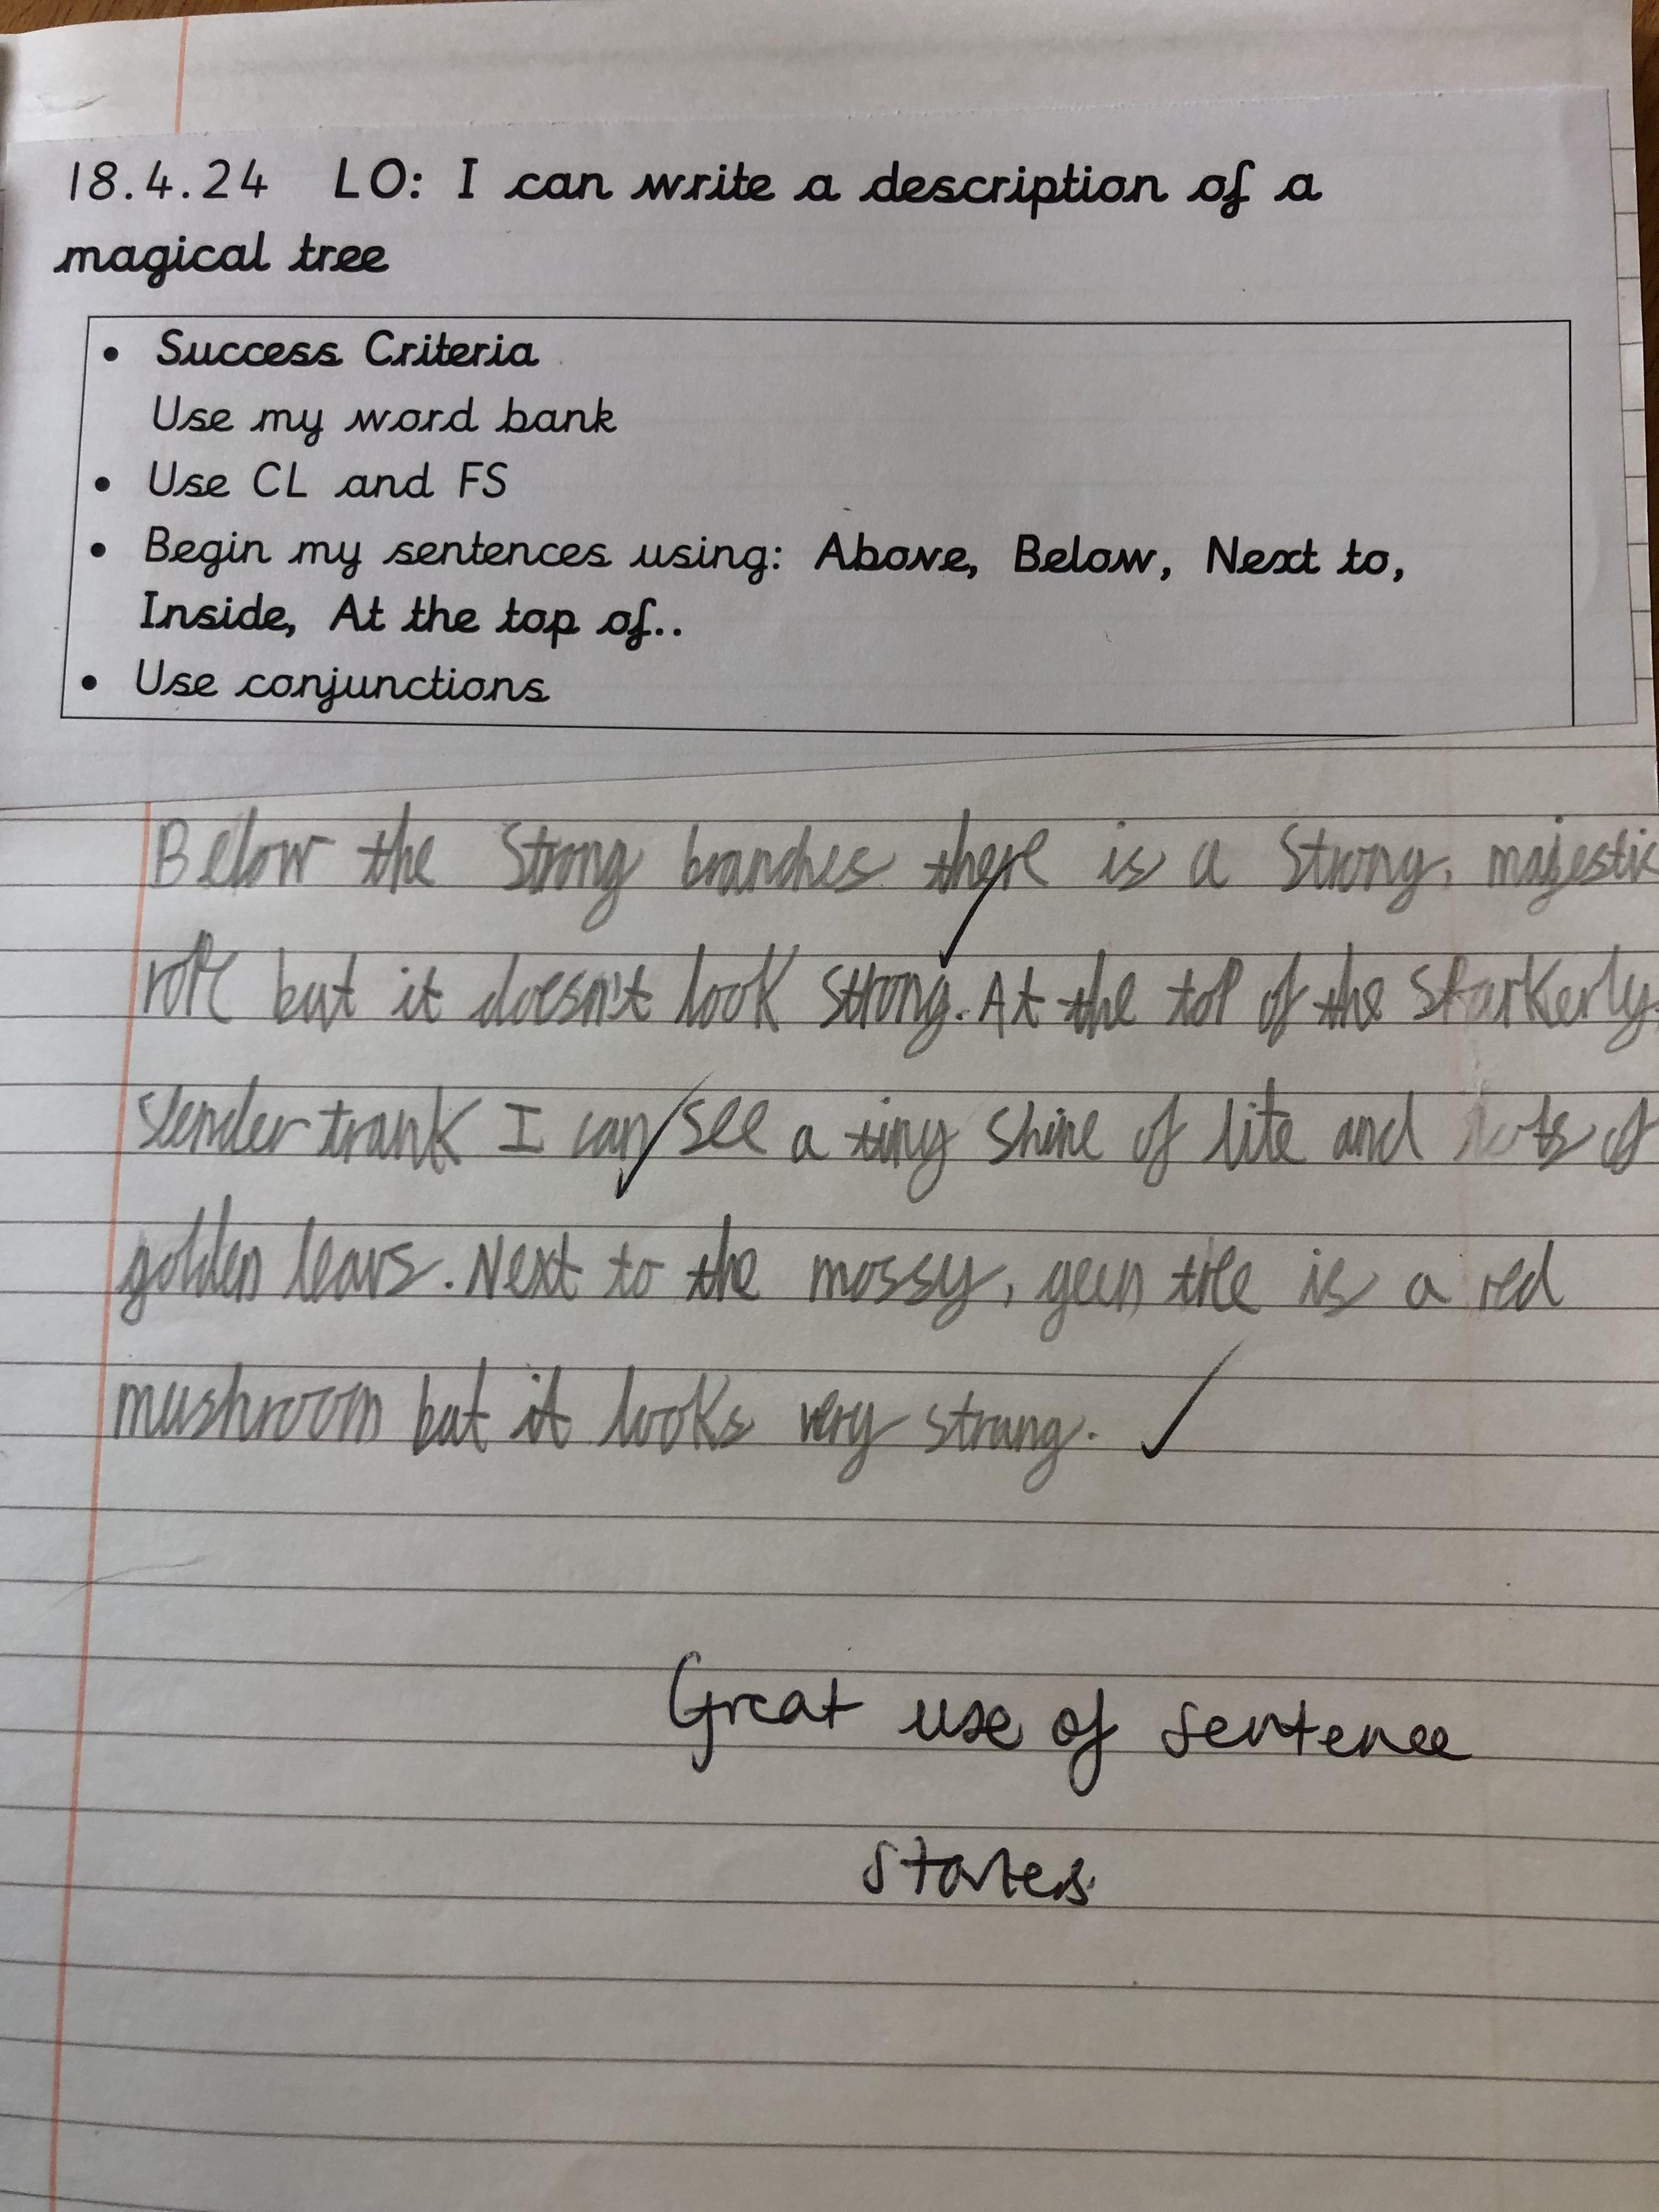 18.4.24 LO: I can write a description of a
magical tree
• Success Criteria
Use my word bank
• Use CL and FS
• Begin my sentences using: Above, Below, Next to,
Inside, At the top of..
• Use conjunctions
Below the Strong branches there is a Strong, majestic
but it doesn't look strong. At the top of the
slender trank I can see a tiny shine of lite and lots of
golden leavs. Next to the mossy, geen tree is a red
mushroom but it looks very strong.
Great use of sentence
starters.